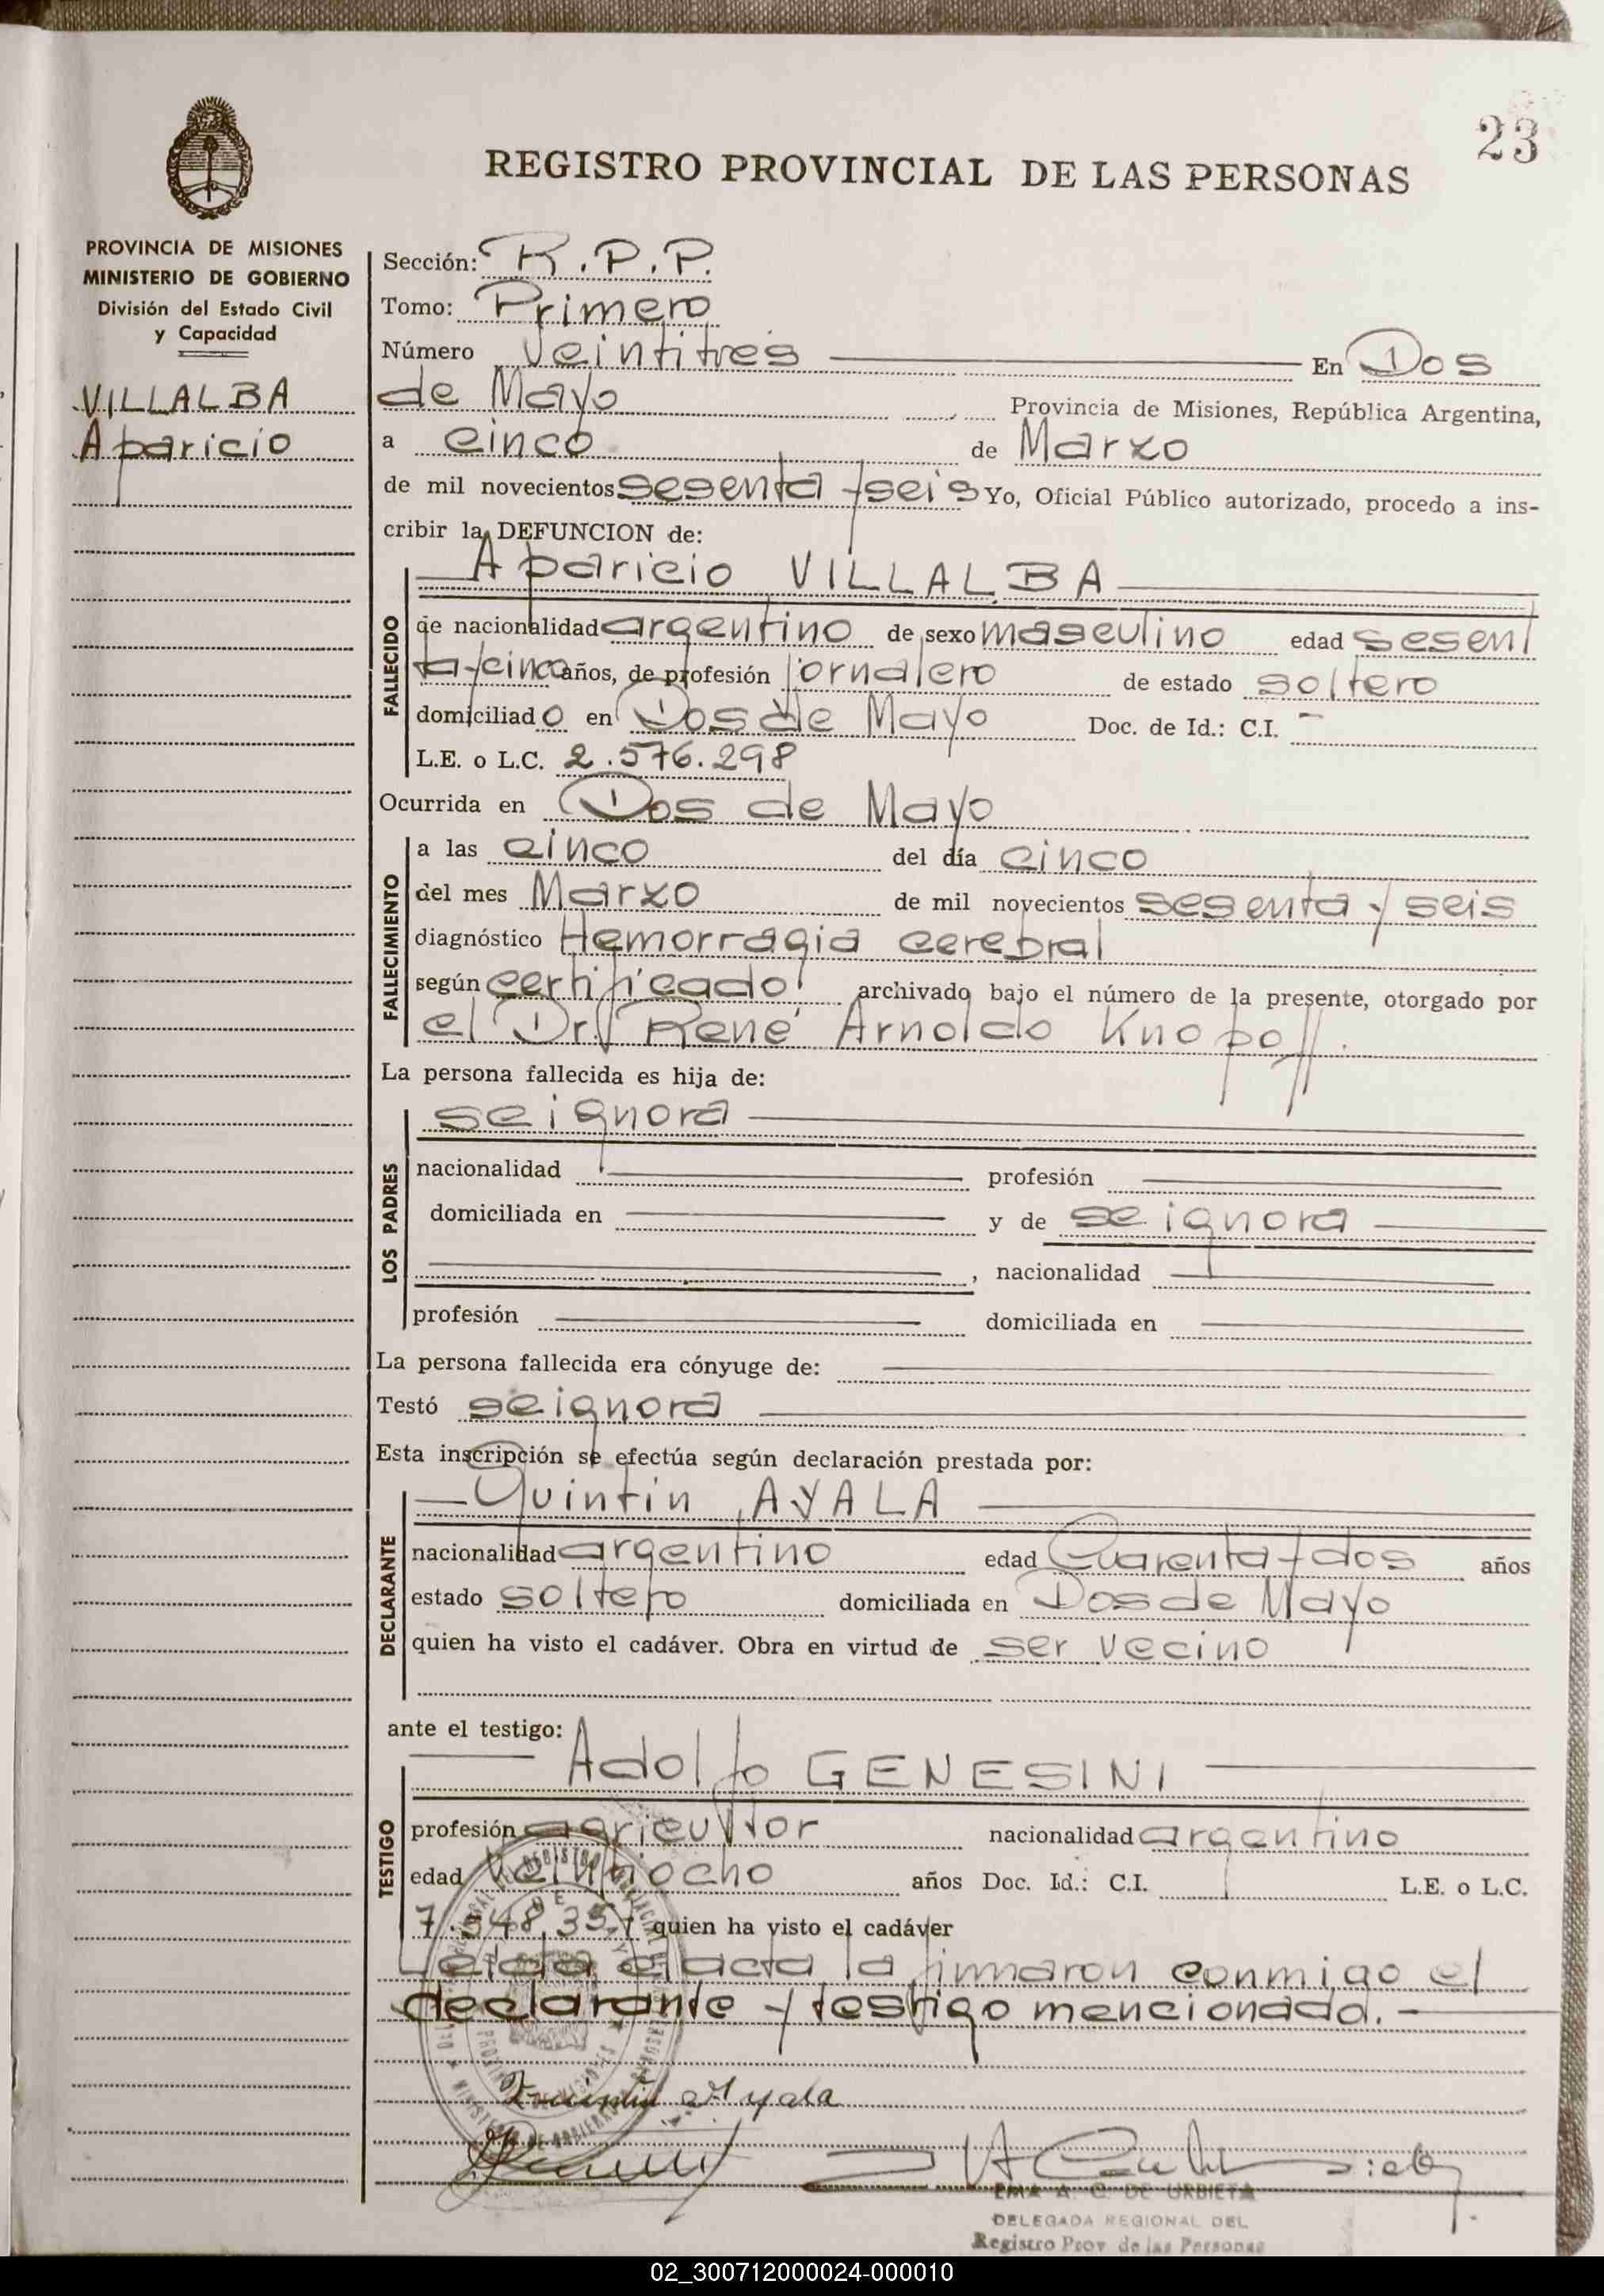 23
REGISTRO PROVINCIAL DE LAS PERSONAS
PROVINCIA DE MISIONES
MINISTERIO DE GOBIERNO
División del Estado Civil
y Capacidad
VILLALBA
Aparicio
Sección: R.P.P.
Tomo: Primero
Número veintitres En Dos
de Mayo Provincia de Misiones, República Argentina,
a cinco de Marzo
de mil novecientos sesenta y seis Yo, Oficial Público autorizado, procedo a ins-
cribir la DEFUNCION de:
Aparicio VILLALBA
FALLECIDO
de nacionalidad argentino de sexo masculino edad sesent
ta y cinco años, de profesión jornalero de estado soltero
domiciliado en Dos de Mayo Doc. de Id.: C.I. -
L.E. o L.C. 2.576.298
Ocurrida en Dos de Mayo
FALLECIMIENTO
a las cinco del día cinco
del mes Marzo de mil novecientos sesenta y seis
diagnóstico Hemorragia cerebral
según certificado archivado bajo el número de la presente, otorgado por
el Dr. René Arnoldo Knopoff.
La persona fallecida es hija de:
LOS PADRES
se ignora
nacionalidad profesión
domiciliada en y de se ignora
, nacionalidad
profesión domiciliada en
La persona fallecida era cónyuge de:
Testó se ignora
Esta inscripción se efectúa según declaración prestada por:
DECLARANTE
Quintin AYALA
nacionalidad argentino edad Cuarenta y dos años
estado soltero domiciliada en Dos de Mayo
quien ha visto el cadáver. Obra en virtud de ser vecino
ante el testigo:
TESTIGO
Adolfo GENESINI
profesión agricultor nacionalidad argentino
edad veintiocho años Doc. Id.: C.I. L.E. o L.C.
quien ha visto el cadáver
Leida el acta la firmaron conmigo el
declarante y testigo mencionado.
Quintin Ayala
EMA A. C. DE URBIETA
DELEGADA REGIONAL DEL
Registro Prov de las Personas
02_300712000024-000010